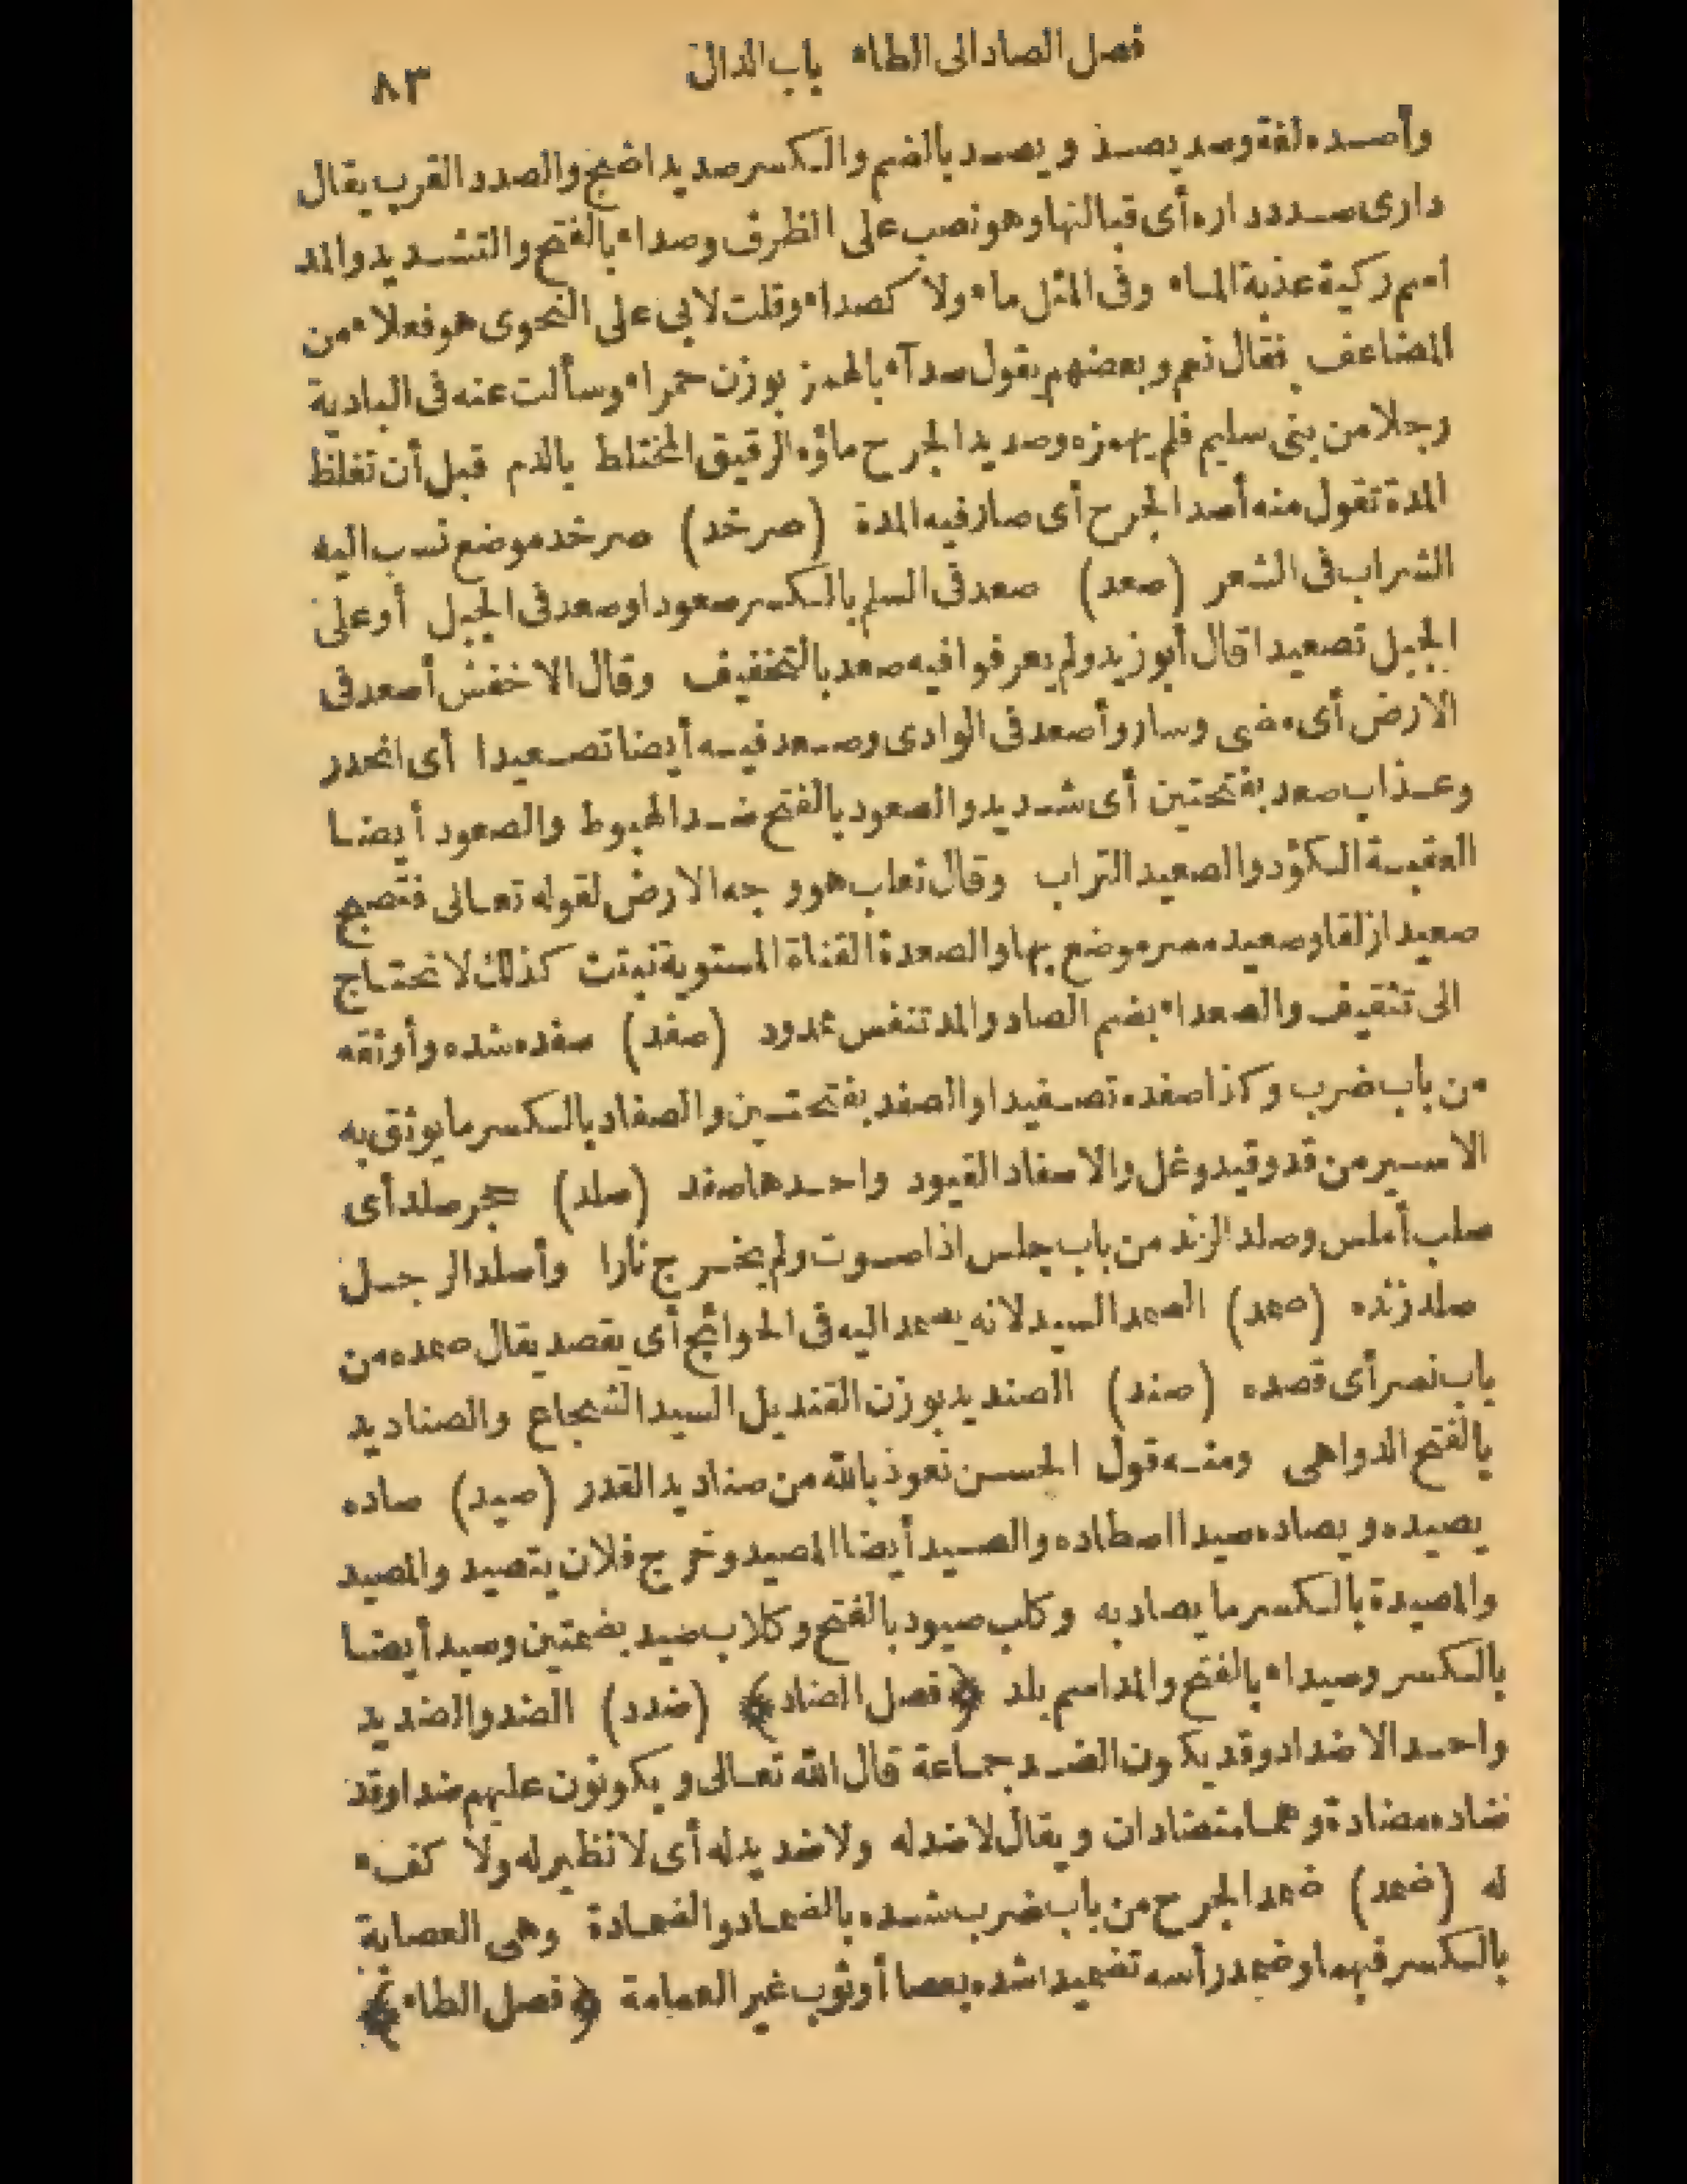 فصل الصاد الى الطاء باب الدال ٨٣
وأصده لغة وصد يصد ويصد بالضم والكسر صديدا ضج والصدد القرب يقال
دارى صدد داره أى قبالتها وهو نصب على الظرف وصداء بالفتح والتشديد والمد
اسم ركية عذبة الماء وفى المثل ماء ولا كصداء وقلت لابى على النحوى هو فعلاء من
المضاعف فقال نعم وبعضهم يقول صدآء بالهمز بوزن حمراء وسألت عنه فى البادية
رجلا من بنى سليم فلم يهمزه وصديد الجرح ماؤه الرقيق المختلط بالدم قبل أن تغلظ
المدة تقول منه أصد الجرح أى صار فيه المدة (صرخد) صرخد موضع نسب اليه
الشراب فى الشعر (صعد) صعد فى السلم بالكسر صعودا وصعد فى الجبل أو على
الجبل تصعيدا قال أبو زيد ولم يعرفوا فيه صعد بالتخفيف وقال الاخفش أصعد فى
الارض أى مضى وسار وأصعد فى الوادى وصعد فيه أيضا تصعيدا أى انحدر
وعذاب صعد بفتحتين أى شديد والصعود بالفتح ضد الهبوط والصعود أيضا
العقبة الكؤد والصعيد التراب وقال ثعلب هو وجه الارض لقوله تعالى فتصبح
صعيدا زلقا وصعيد مصر موضع بها والصعدة القناة المستوية نبتت كذلك لا تحتاج
الى تثقيف والصعداء بضم الصاد والمد تنفس ممدود (صفد) صفده شده وأوثقه
من باب ضرب وكذا صفده تصفيدا والصفد بفتحتين والصفاد بالكسر ما يوثق به
الاسير من قد وقيد وغل والاصفاد القيود واحدها صفد (صلد) حجر صلد أى
صلب أملس وصلد الزند من باب جلس اذا صوت ولم يخرج نارا وأصلد الرجل
صلد زنده (صمد) الصمد السيد لانه يصمد اليه فى الحوائج أى يقصد يقال صمده من
باب نصر أى قصده (صند) الصنديد بوزن القنديل السيد الشجاع والصناديد
بالفتح الدواهى ومنه قول الحسن نعوذ بالله من صناديد القدر (صيد) صاده
يصيده ويصاده صيدا اصطاده والصيد أيضا المصيد وخرج فلان يتصيد والمصيد
والمصيدة بالكسر ما يصاد به وكلب صيود بالفتح وكلاب صيد بضمتين وصيد أيضا
بالكسر وصيداء بالفتح والمد اسم بلد ﴿فصل الضاد﴾ (ضدد) الضد والضديد
واحد الاضداد وقد يكون الضد جماعة قال الله تعالى ويكونون عليهم ضدا وقد
ضاده مضادة وهما متضادان ويقال لا ضد له ولا ضديد له أى لا نظير له ولا كفء
له (ضمد) ضمد الجرح من باب ضرب شده بالضماد والضمادة وهى العصابة
بالكسر فيهما وضمد رأسه تضميدا شده بعصا أو ثوب غير العمامة ﴿فصل الطاء﴾